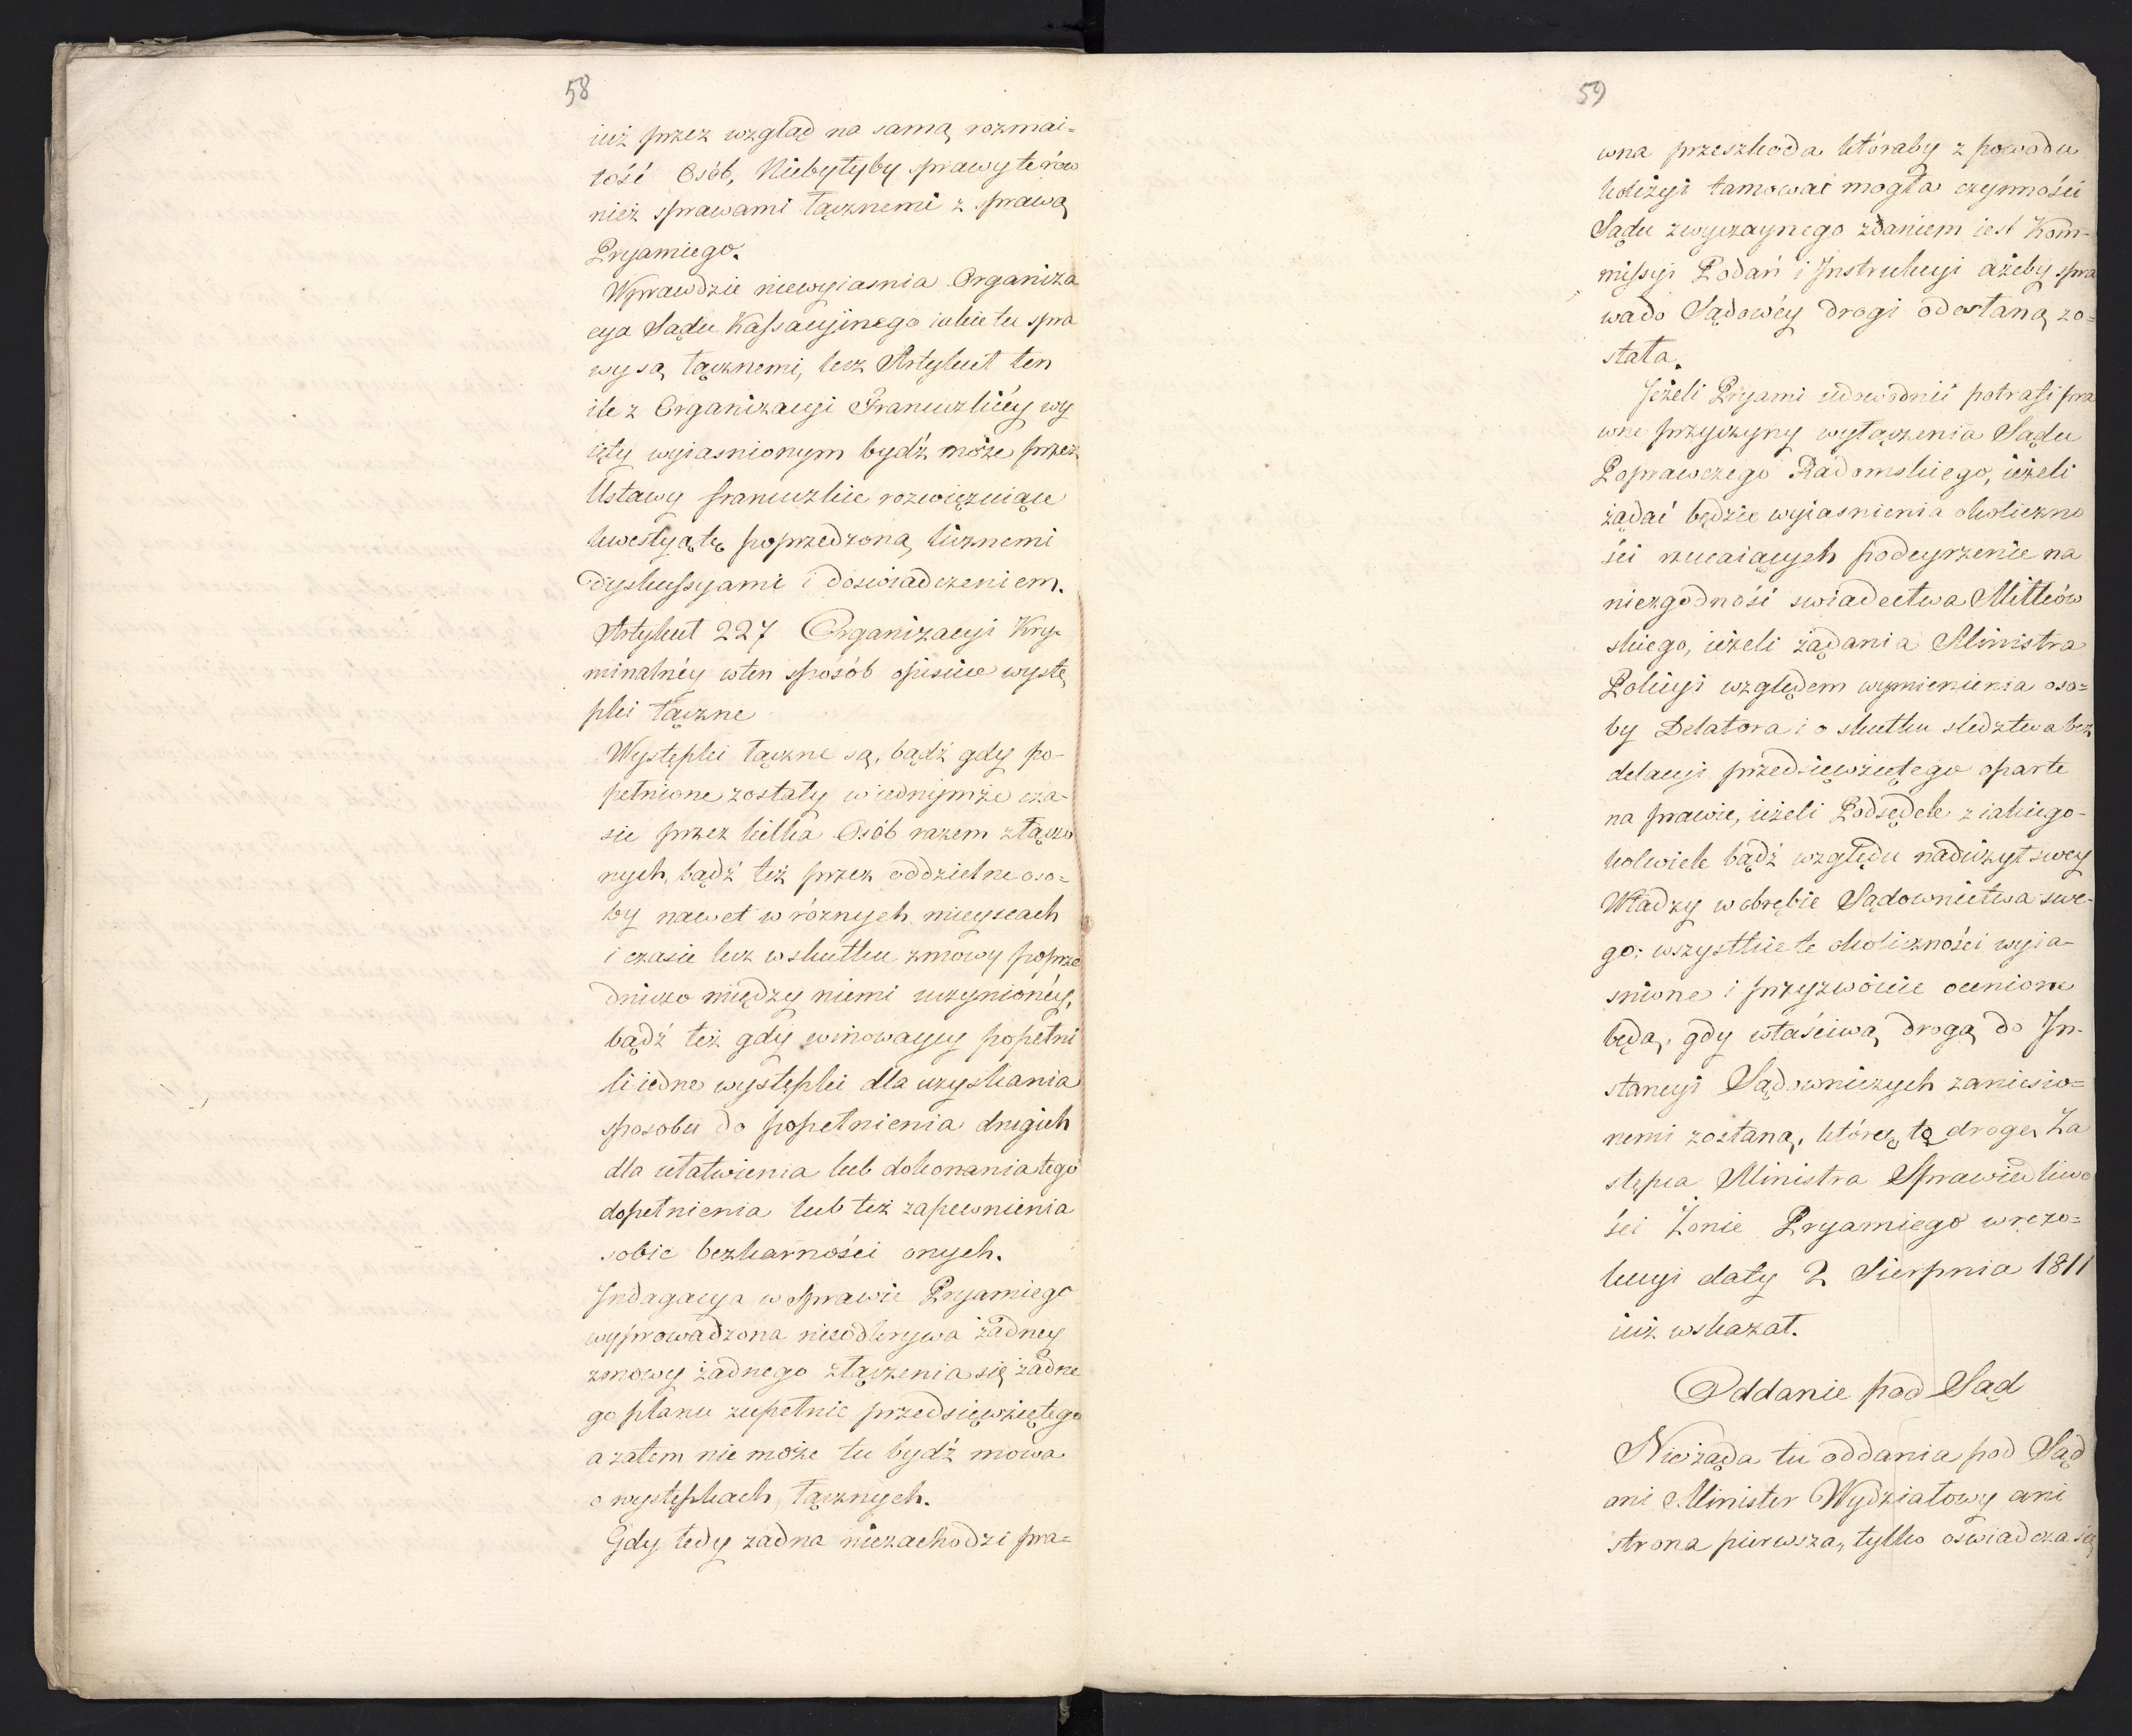 58
iuż przez wzgląd na samą rozmai=
tość Osób, Niebyłyby sprawy te rów
nież sprawami łącznemi z sprawą
Pryamiego.
Wprawdzie niewyiasnia Organiza
cya Sądu Kassacyinego iakie tu spra
wy są łącznemi, lecz Artykuł ten
ile z Organizacyi Francuzkiéy wy
ięty wyiasnionym bydź może przez
Ustawy francuzkie rozwięzuiące
kwestyą tę poprzedzoną licznemi
dyskussyami i doswiadczeniem.
Artykuł 227 Organizacyi Kry-
minalnéy w ten sposób opisuie wystę
pki łączne
Występki łączne są, bądź gdy po-
pełnione zostały w iednymże cza-
sie przez kilka Osób razem złączo
nych, bądź też przez oddzielne oso=
by nawet w różnych mieyscach
i czasie lecz w skutku zmowy poprze
dniczo między niemi uczynionéy,
bądź też gdy winowaycy popełni
li iedne występki dla uzyskania
sposobu do popełnienia drugich
dla ułatwienia lub dokonania tego
dopełnienia lub też zapewnienia
sobie bezkarności onych.
Indagacya w Sprawie Pryamiego
wyprowadzona nieodkrywa żadney
zmowy żadnego złączenia się żadne
go planu zupełnie przedsięwziętego
a zatem nie może tu bydź mowa
o występkach łącznych.
Gdy tedy żadna niezachodzi pra=
59
wna przeszkoda któraby z powodu
kolizyi tamować mogła czynności
Sądu zwyczaynego zdaniem iest Kom-
missyi Podań i Instrukcyi ażeby spra
wa do Sądowéy drogi odesłaną zo=
stała.
Jeżeli Pryami udowodnić potrafi pra
wne przyczyny wyłączenia Sądu
Poprawczego Radomskiego, ieżeli
żądać będzie wyiasnienia okoliczno
ści rzucaiących podeyrzenie na
niezgodności swiadectwa Mitków
skiego, ieżeli żądania Ministra
Policyi względem wymienienia oso=
by Delatora i o skutku sledztwa bez
delacyi przedsięwziętego oparte
na prawie, ieżeli Podsędek z iakiego-
kolwiek bądź względu nadużył swey
Władzy w obrębie Sądownictwa swe-
go: wszystkie te okoliczności wyia-
snione i przyzwoicie ocenione
będą, gdy właściwą drogą do In-
stancyi Sądowniczych zaniesio=
nemi zostaną, którą tę drogę Za
stępca Ministra Sprawiedliwo
ści Żonie Pryamiego w rezo=
lucyi daty 2 Sierpnia 1811
iuż wskazał.
Oddanie pod Sąd
Nieżąda tu oddania pod Sąd
ani Minister Wydziałowy ani
strona pierwsza, tylko oswiadcza się